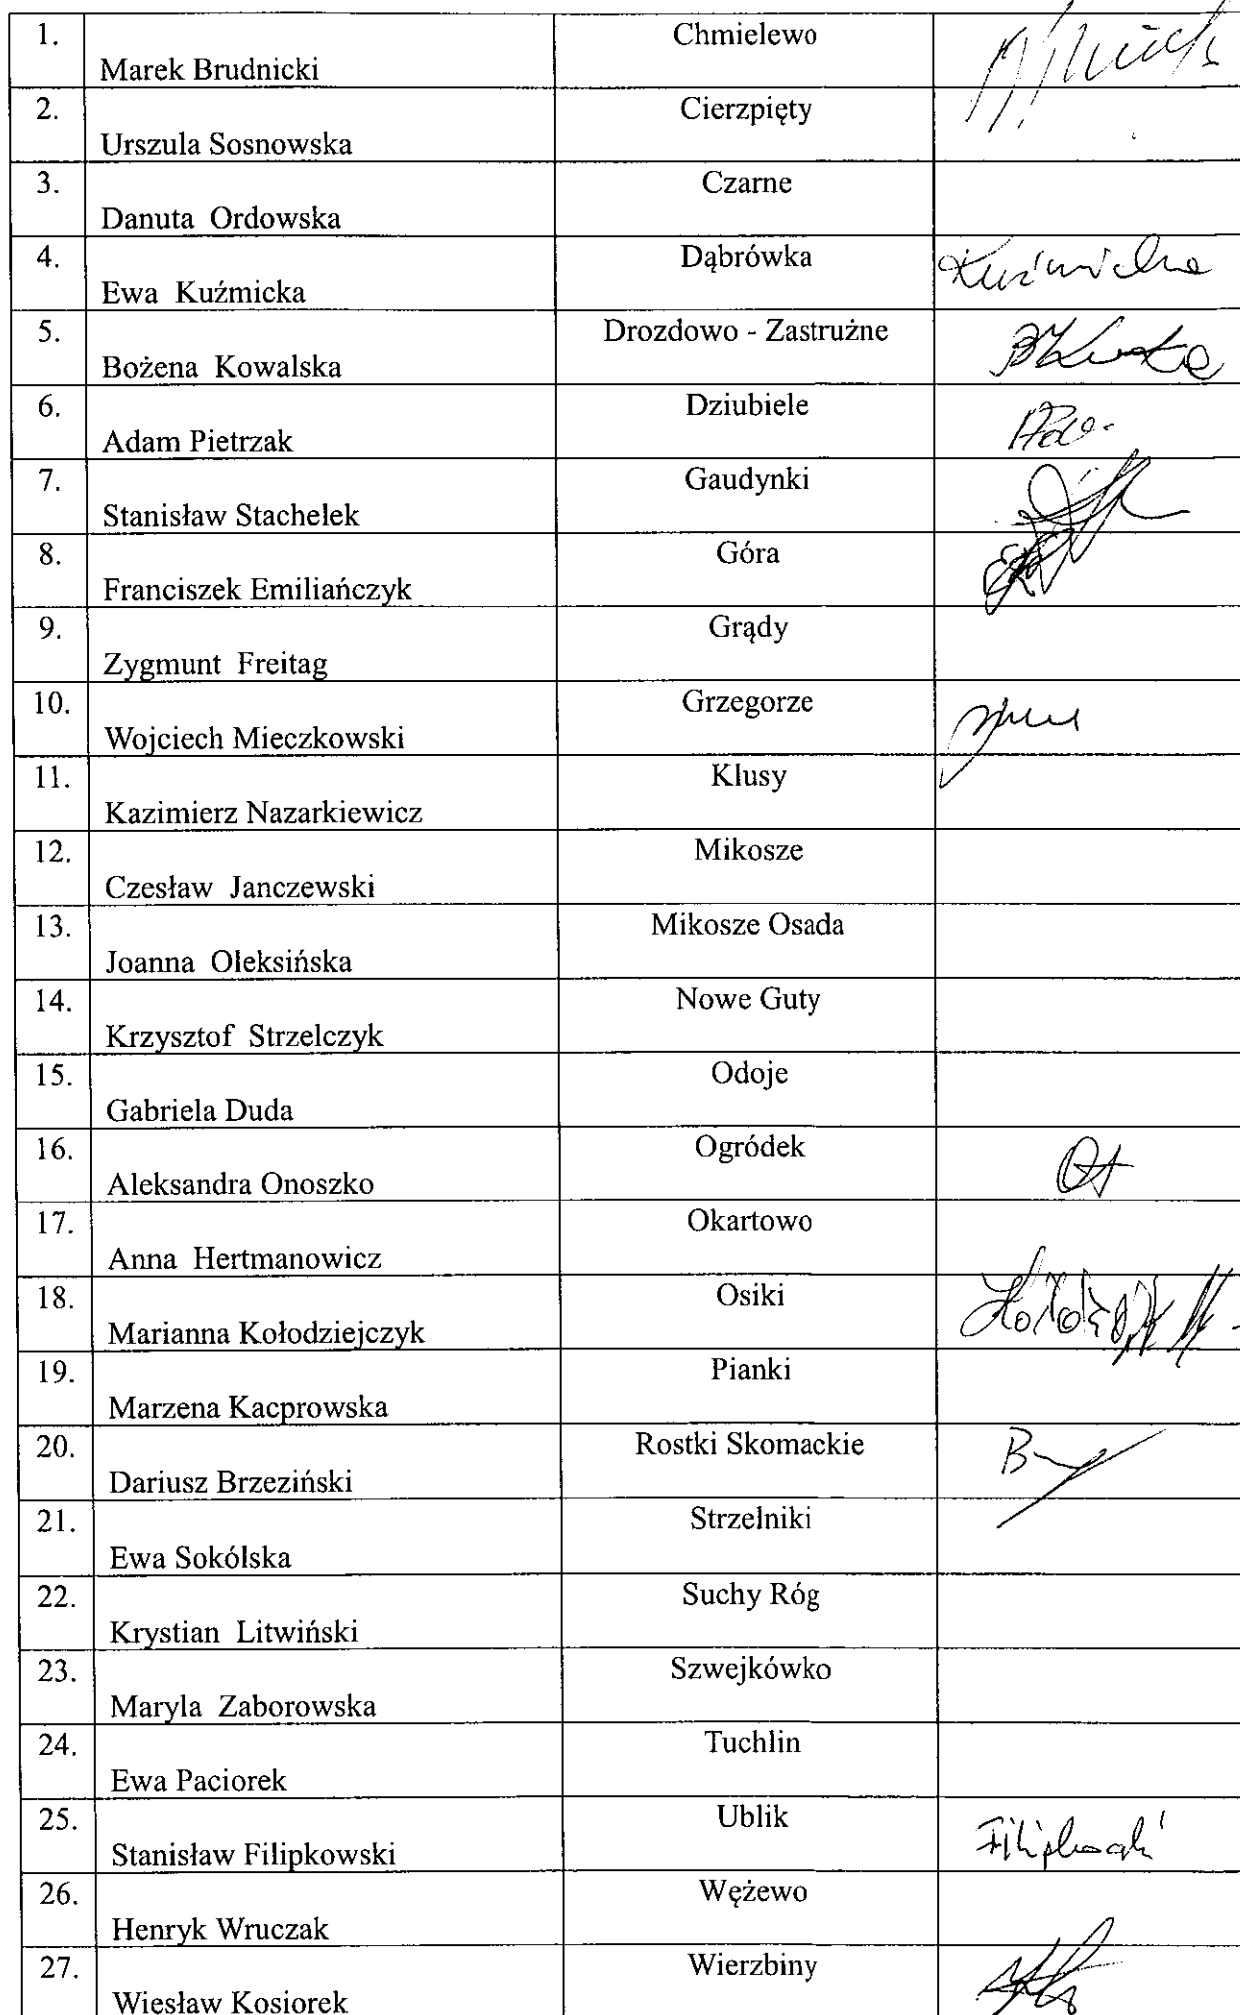 1. Marek Brudnicki Chmielewo
2. Urszula Sosnowska Cierzpięty
3. Danuta Ordowska Czarne
4. Ewa Kuźmicka Dąbrówka
5. Bożena Kowalska Drozdowo - Zastrużne
6. Adam Pietrzak Dziubiele
7. Stanisław Stachelek Gaudynki
8. Franciszek Emiliańczyk Góra
9. Zygmunt Freitag Grądy
10. Wojciech Mieczkowski Grzegorze
11. Kazimierz Nazarkiewicz Klusy
12. Czesław Janczewski Mikosze
13. Joanna Oleksińska Mikosze Osada
14. Krzysztof Strzelczyk Nowe Guty
15. Gabriela Duda Odoje
16. Aleksandra Onoszko Ogródek
17. Anna Hertmanowicz Okartowo
18. Marianna Kołodziejczyk Osiki
19. Marzena Kacprowska Pianki
20. Dariusz Brzeziński Rostki Skomackie
21. Ewa Sokólska Strzelniki
22. Krystian Litwiński Suchy Róg
23. Maryla Zaborowska Szwejkówko
24. Ewa Paciorek Tuchlin
25. Stanisław Filipkowski Ublik
26. Henryk Wruczak Wężewo
27. Wiesław Kosiorek Wierzbiny